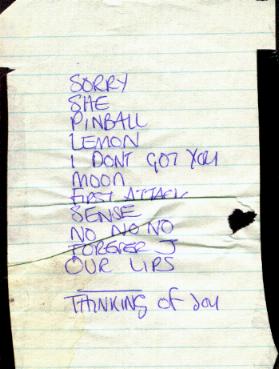 SORRY
SHE
PINBALL
LEMON
I DONT GOT YOU
MOON
FIRST ATTACK
SENSE
NO NO NO
FOREVER J
OUR LIPS
THINKING of YOU